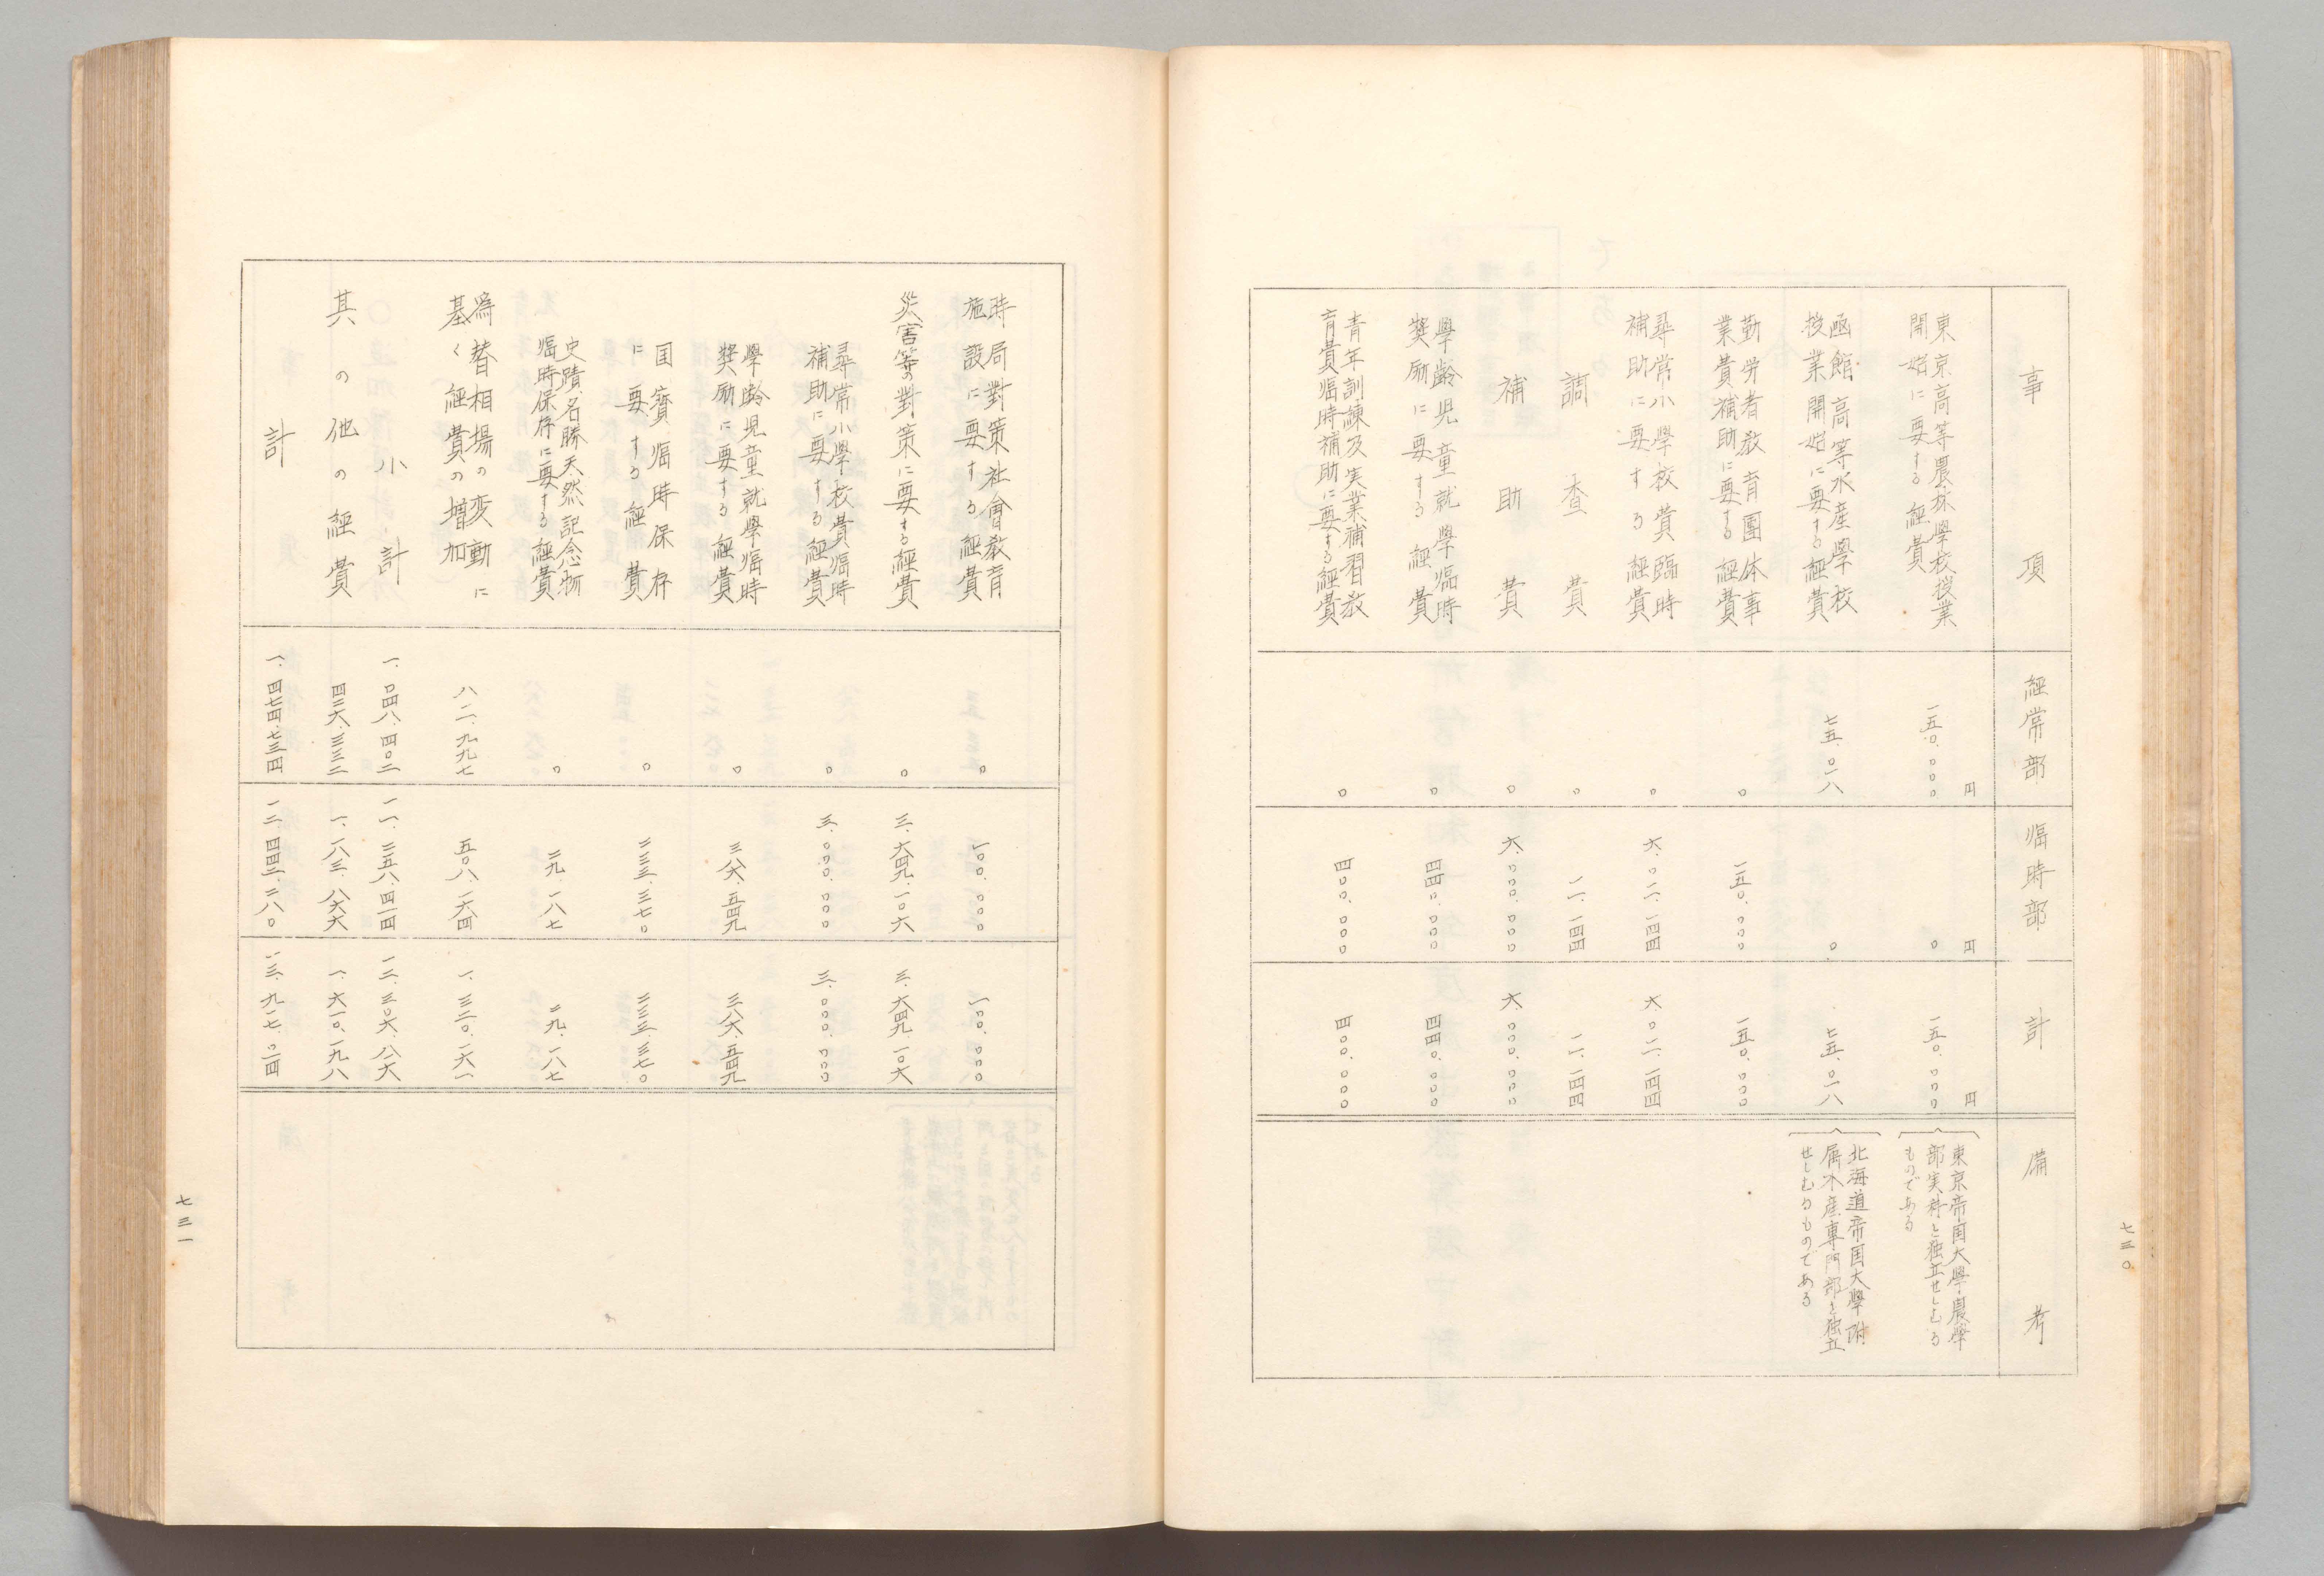 事項 経常部 臨時部 計 備考
円 円 円
東京高等農林學校授業
開始に要する経費
一五〇.〇〇〇 〇 一五〇.〇〇〇
東京帝国大學農學
部実科を独立せしむる
ものである
函館高等水産學校
授業開始に要する経費
七五.〇一八 〇 七五.〇一八
北海道帝国大學附
属水産專門部を独立
せしむるものである
勤労者教育團体事
業費補助に要する経費
〇 一五〇.〇〇〇 一五〇.〇〇〇
尋常小學校費臨時
補助に要する経費
〇 六.〇一二.一四四 六.〇一二.一四四
調査費
〇 一二.一四四 一二.一四四
補助費
〇 六.〇〇〇.〇〇〇 六.〇〇〇.〇〇〇
學齢児童就學臨時
奬励に要する経費
〇 四四〇.〇〇〇 四四〇.〇〇〇
青年訓練及実業補習教
育費臨時補助に要する経費
〇 四〇〇.〇〇〇 四〇〇.〇〇〇
七三〇
時局對策社會教育
施設に要する経費
〇 一〇〇.〇〇〇 一〇〇.〇〇〇
災害等の對策に要する経費
〇 三.六四九.一〇六 三.六四九.一〇六
尋常小學校費臨時
補助に要する経費
〇 三.〇〇〇.〇〇〇 三.〇〇〇.〇〇〇
學齢児童就學臨時
奬励に要する経費
〇 三八六.五四九 三八六.五四九
国寶臨時保存
に要する経費
〇 二三三.三七〇 二三三.三七〇
史蹟名勝天然記念物
臨時保存に要する経費
〇 二九.一八七 二九.一八七
為替相場の変動に
基く経費の増加
八一二.九九七 五〇八.一六四 一.三二〇.一六一
小計
一.〇四八.四〇二 一一.二五八.四一四 一二.三〇六.八一六
其の他の経費
四二六.三三二 一.一八三.八六六 一.六一〇.一九八
計
一.四七四.七三四 一二.四四二.二八〇 一三.九一七.〇一四
七三一